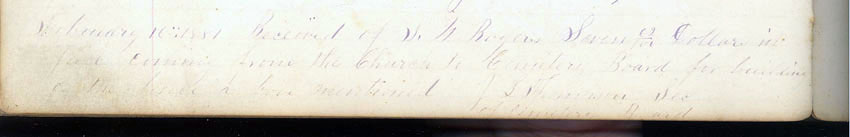 February 16th 1881 Received of S. N. Rogers Seven 00/100 Dollars in
full comming from the Church to Cemetery Board for building
of the fence a bove mentioned J S Thompson Sec
of Cemetery Board